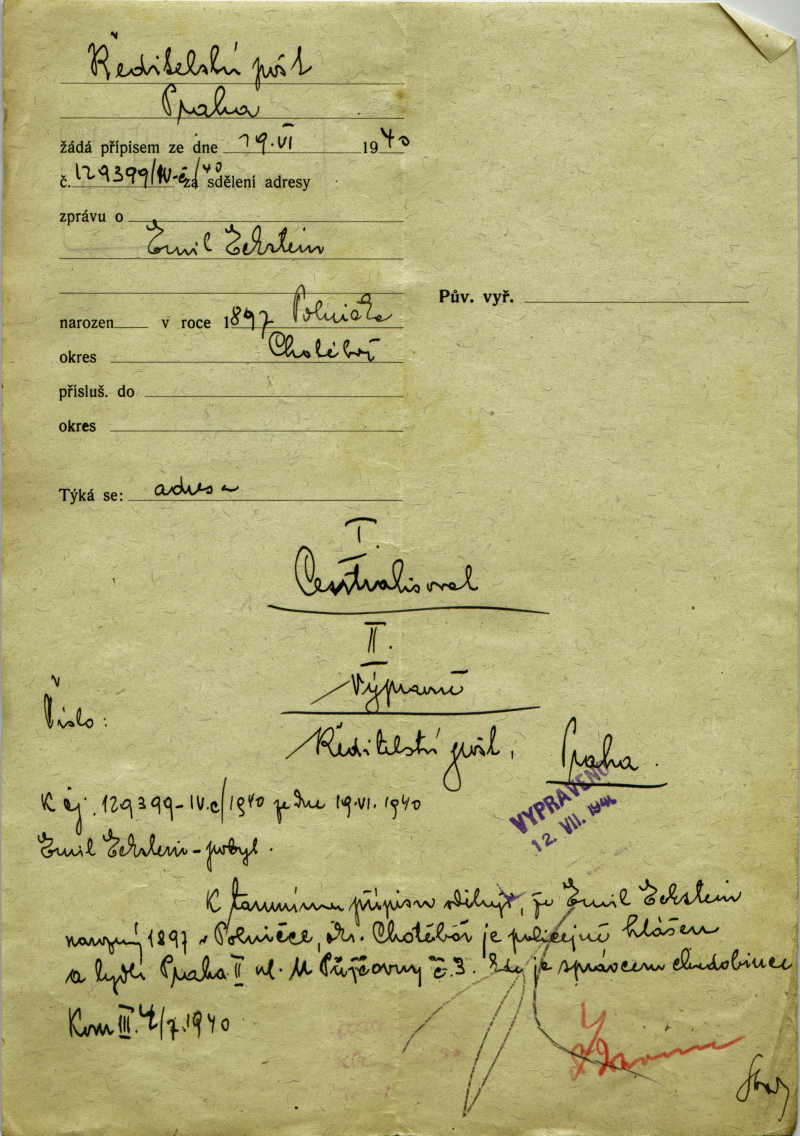 Ředitelství pošt
Praha
žádá přípisem ze dne 19.VI 1940
č. 129399/IV-c/40 za sdělení adresy
zprávu o
Emil Eckstein
Pův. vyř.
narozen v roce 1897 Polnička
okres Chotěboř
přísluš. do
okres
Týká se: adresa
I.
Centralisoval
II.
Výpravně
Číslo:
Ředitelství pošt,
Praha.
K čj. 129399-IV.c/1940 ze dne 19.VI.1940
VYPRAVENO
12. VII. 194
Emil Eckstein - pobyt.
K tamnímu přípisu sděluji, že Emil Eckstein
narozený 1897 v Polničce, okr. Chotěboř je policejně hlášen
a bydlí Praha II ul. U Půjčovny č. 3. kde je správcem chudobince
Kom III. 4/7.1940